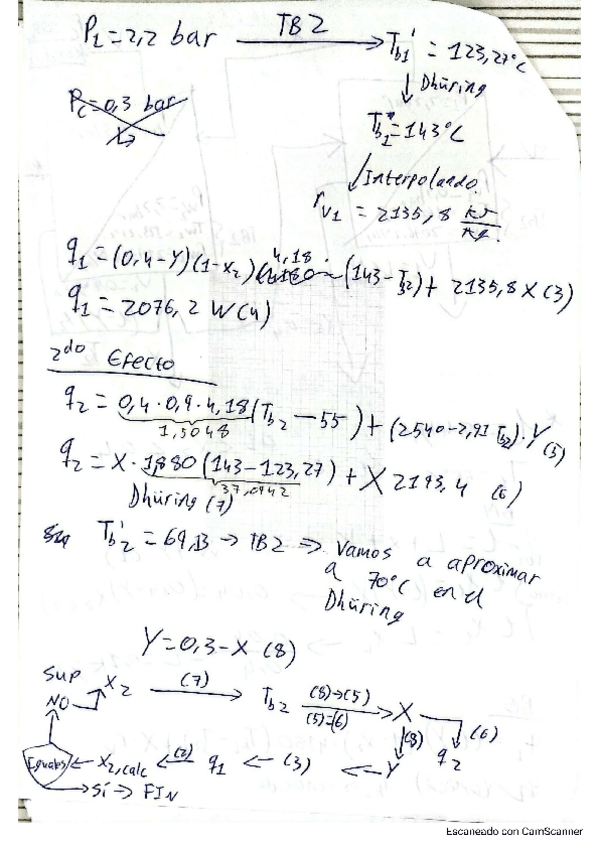 P₁=2,2 bar —TB2→ Tb₁' = 123,27°C
↓ Dhüring
Pc=0,3 bar
Tb₁*=143°C
↓ Interpolando.
rv₁ = 2135,8 kJ/kg.
q₁=(0,4-Y)(1-x₂) 4,18 (143-Tb₂)+ 2135,8 X (3)
q₁=2076,2 W(4)
2do Efecto
q₂= 0,4·0,9·4,18(Tb₂-55)+(2540-2,91 Tb₂)·Y (5)
1,5048
q₂=X·1,880(143-123,27)+X 2193,4 (6)
37,0942
Dhüring (7)
Tb₂'=69,13→TB2⇒ Vamos a aproximar
a 70°C en el
Dhüring
Y=0,3-X (8)
Sup x₂ —(7)→ Tb₂ —(8)→(5) (5)=(6)→ X → (6)
NO
↓(8) q₂
Iguales ← x₂,calc ←(2) q₁ ← (3) ← Y
→ Sí → FIN
Escaneado con CamScanner